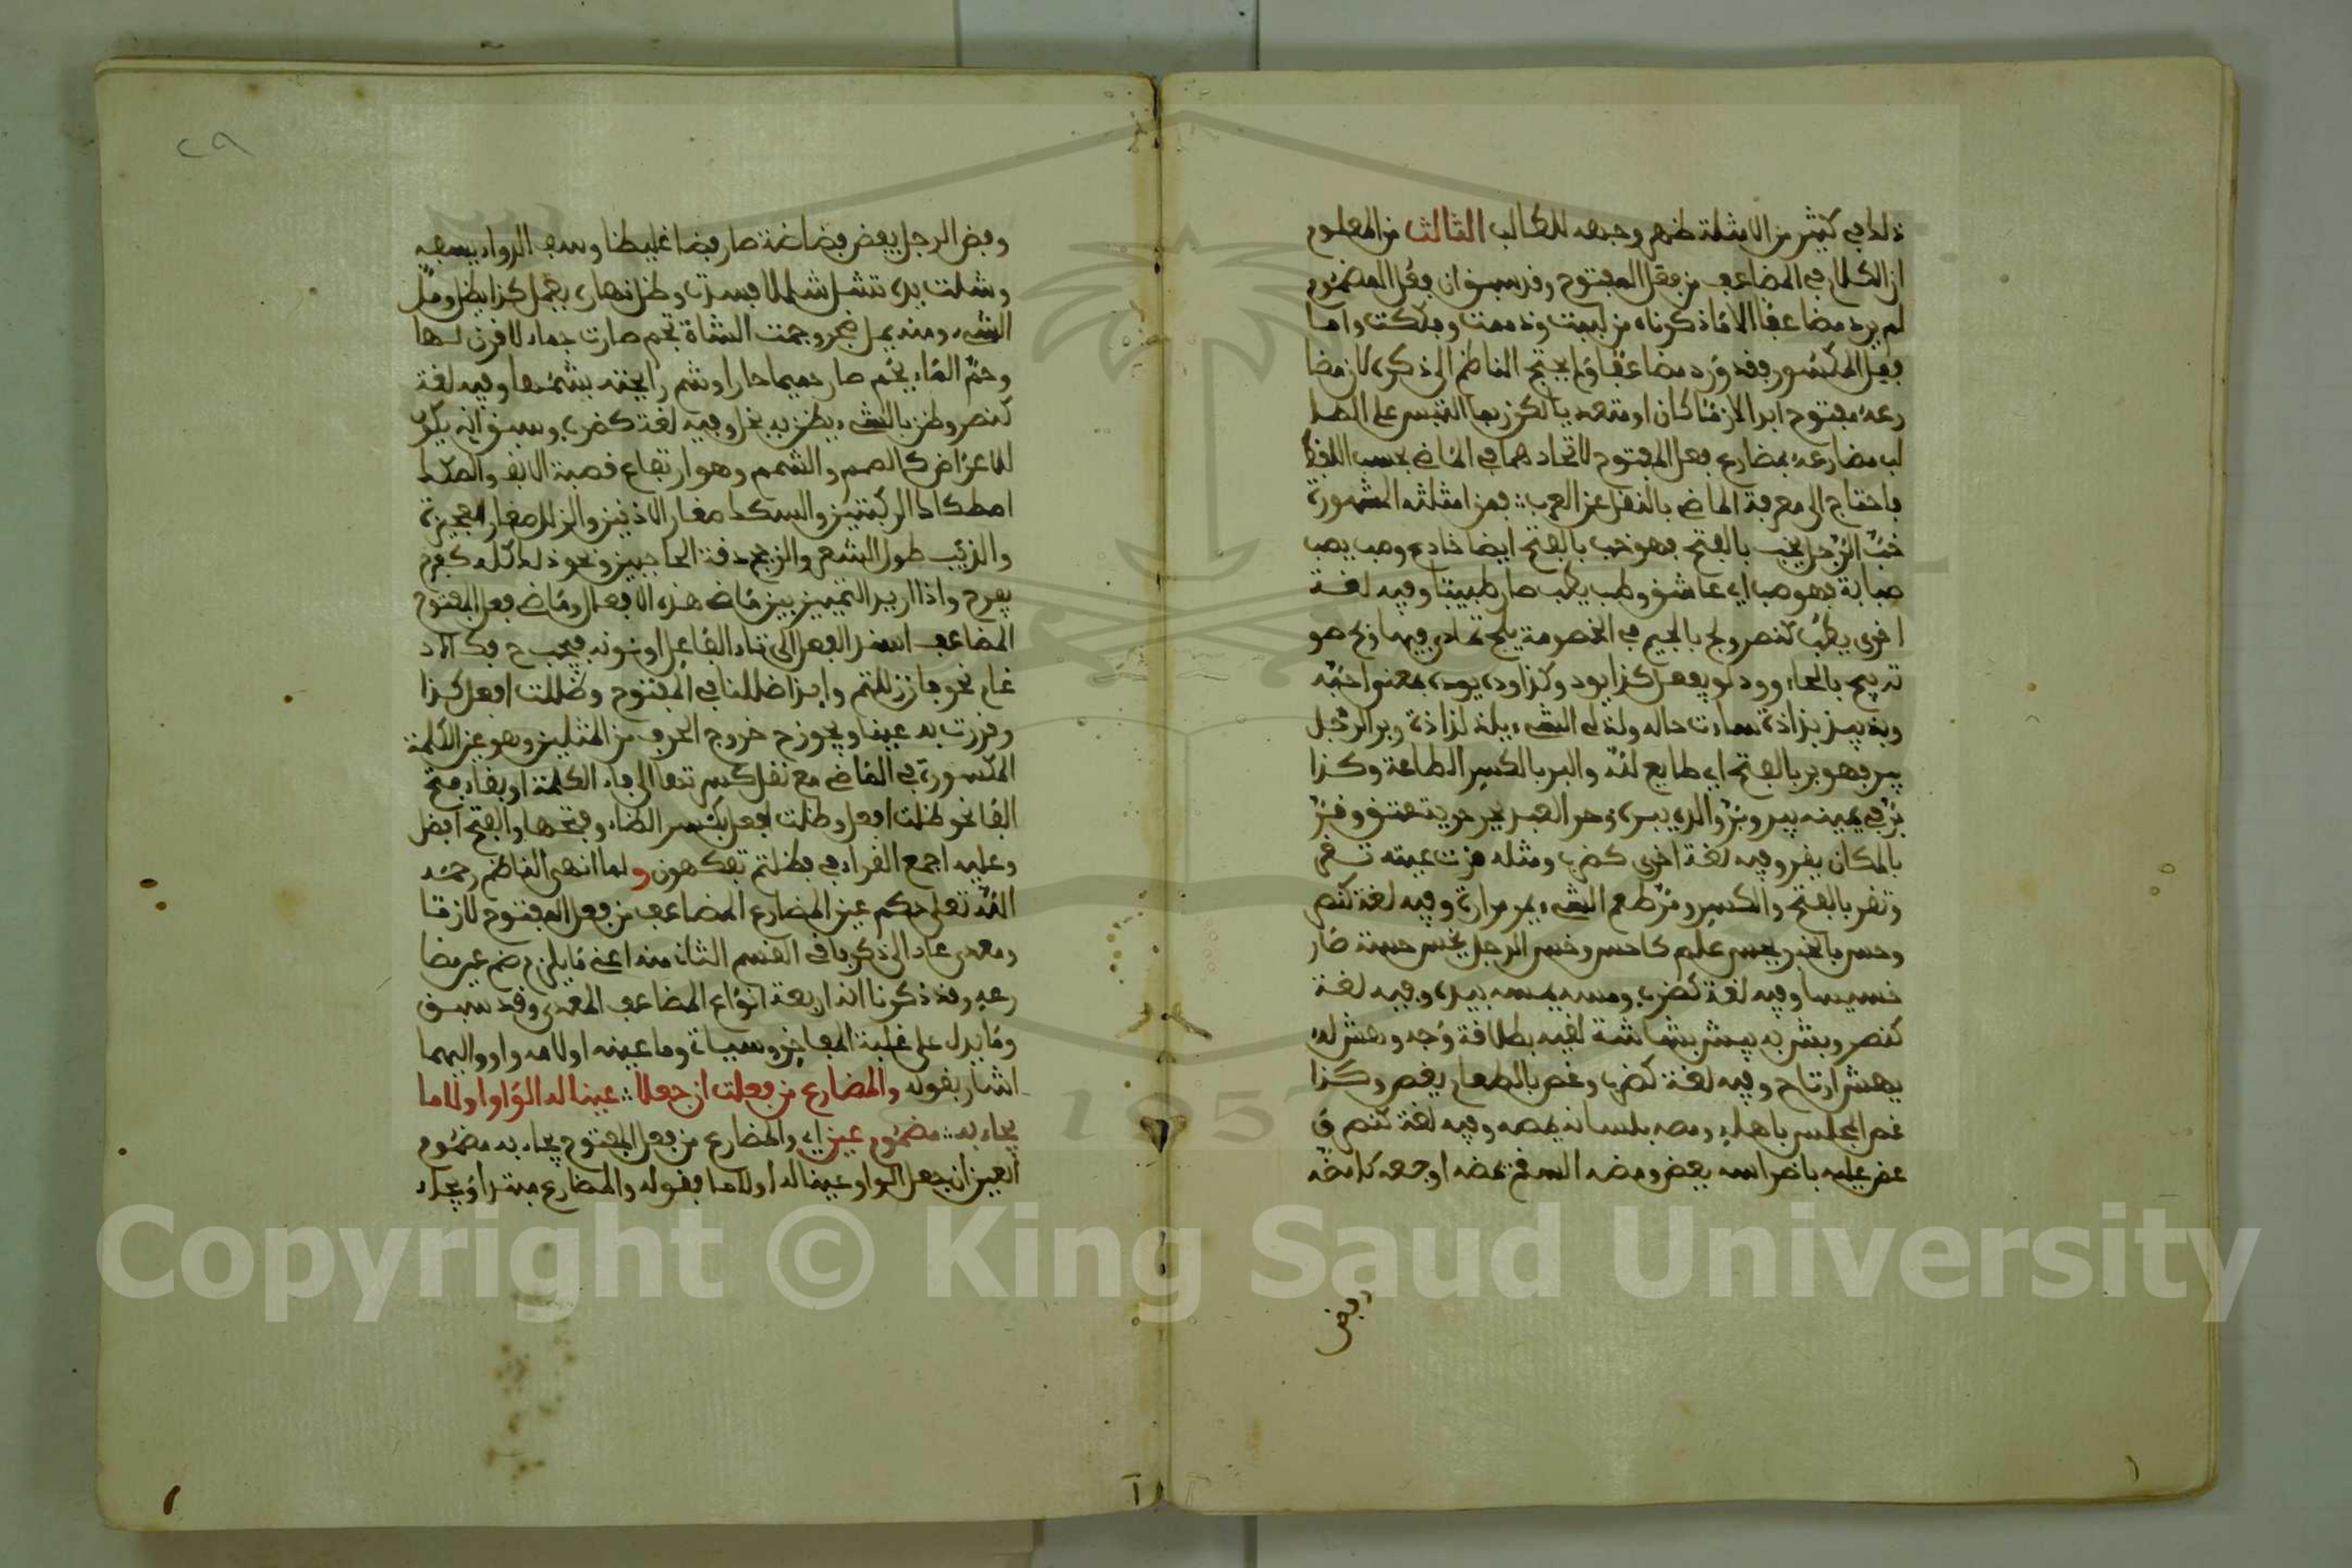 ذلك في كثير من الامثلة ظهر وجهه للطالب الثالث من المعلوم
ان الكلام في المضاعف من فعل المفتوح وقد سبق ان فعل المضموم
لم يرد مضاعفا الا ما ذكرناه من لببت وذممت وفككت واما
فعل المكسور فقد ورد مضاعفا ولم يحتج الناظم الى ذكره لان مضا
رعه مفتوح ابدا لازما كان او متعديا لكن ربما التبس على الطا
لب مضارعه بمضارع فعل المفتوح لاتحادهما في الماضي بحسب اللفظ
فاحتاج الى معرفة الماضي بالنقل عن العرب فمن امثلته المشهورة
خب الرجل يخب بالفتح فهو خب بالفتح ايضا خادع وصب يصب
صبابة فهو صب اي عاشق وطب يطب صار طبيبا وفيه لغة
اخرى يطب كنصر ولج بالجيم في الخصومة يلج تمادى فيها وبح صو
ته يبح بالحاء وود لو يفعل كذا يود وكذا وده يوده بمعنى احبه
وبذ يبذ بذاذة ساءت حاله ولذ له الشيء يلذ لذاذة وبر الرجل
يبر فهو بر بالفتح اي طايع لله والبر بالكسر الطاعة وكذا
بر في يمينه يبر وبر والديه يبره وحر العبد يحر حرية عتق وقر
بالمكان يقر وفيه لغة اخرى كضرب ومثله قرت عينه تقر
وتقر بالفتح والكسر ومر طعم الشيء يمر مرارة وفيه لغة كنصر
وحس بالخبر يحس علم كاحس وخس الرجل يخس خسة صار
خسيسا وفيه لغة كضرب ومسه يمسه بيده وفيه لغة
كنصر وبش به يبش بشاشة لقيه بطلاقة وجه وهش له
يهش ارتاح وفيه لغة كضرب وغص بالطعام يغص وكذا
غص المجلس باهله ومصه بلسانه يمصه وفيه لغة كنصر و
عض عليه باضراسه يعض ومضه السقم يمضه اوجعه كامضه
وفض
٢٩
وفظ الرجل يفظ فظاظة صار فظا غليظا وسف الدواء يسفه
وشلت يده تشل شللا فسدت وظل نهاره يفعل كذا يظل ومل
الشيء ومنه يمل ضجر وجمت الشاة تجم صارت جماء لا قرن لها
وحم الماء يحم صار حميما حارا وشم رايحته يشمها وفيه لغة
كنصر وضن بالشيء يضن به بخل وفيه لغة كضرب وسبق انه يكون
للاعراض كالصمم والشمم وهو ارتفاع قصبة الانف والصكك
اصطكاك الركبتين والسكك صغار الاذنين والزلل صغار العجيزة
والزبب طول الشعر والزجج دقة الحاجبين ونحو ذلك كله كفرح
يفرح واذا اريد التمييز بين ماضي هذه الافعال وماضي فعل المفتوح
المضاعف اسند الفعل الى تاء الفاعل او نونه فيجب ح فك الاد
غام نحو فان زللتم وائذا ضللنا في المفتوح وظللت افعل كذا
وقررت به عينا ويجوز ح خروج الحرف من المثلين وهو عين الكلمة
المكسورة في الماضي مع نقل كسرتها الى فاء الكلمة او بقاء فتح
الفا نحو ظلت افعل وظلت افعل بكسر الظاء وفتحها والفتح افضل
وعليه اجمع القراء في فظلتم تفكهون ولما انهى الناظم رحمه
الله تعلى حكم عين المضارع المضاعف من فعل المفتوح لازما
ومعدى عاد الى ذكر باقي القسم الثاني منه اعني ما يلزم ضم عين مضا
رعه وقد ذكرنا انه اربعة انواع المضاعف المعدى وقد سبق
وما يدل على غلبة المفاخر وسياتي وما عينه او لامه واو واليهما
اشار بقوله والمضارع من فعلت ان جعلا عينا له الواو او لاما
يجاء به مضموم عين اي والمضارع من فعل المفتوح يجاء به مضموم
العين ان جعل الواو عينا له او لاما فقوله والمضارع مبتدا ويجاء
Copyright © King Saud University
1957